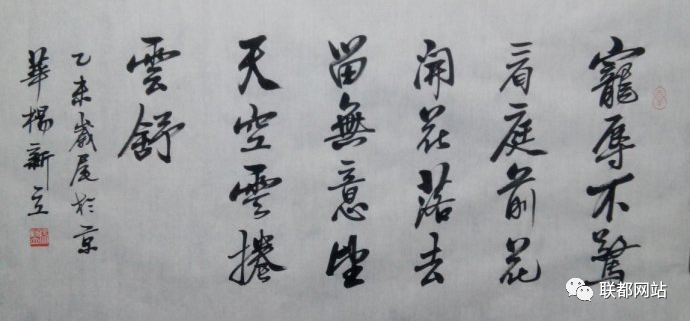 寵辱不驚
看庭前花
開花落去
留無意望
天空雲捲
雲舒
乙未歲尾於京
華楊新立
联都网站